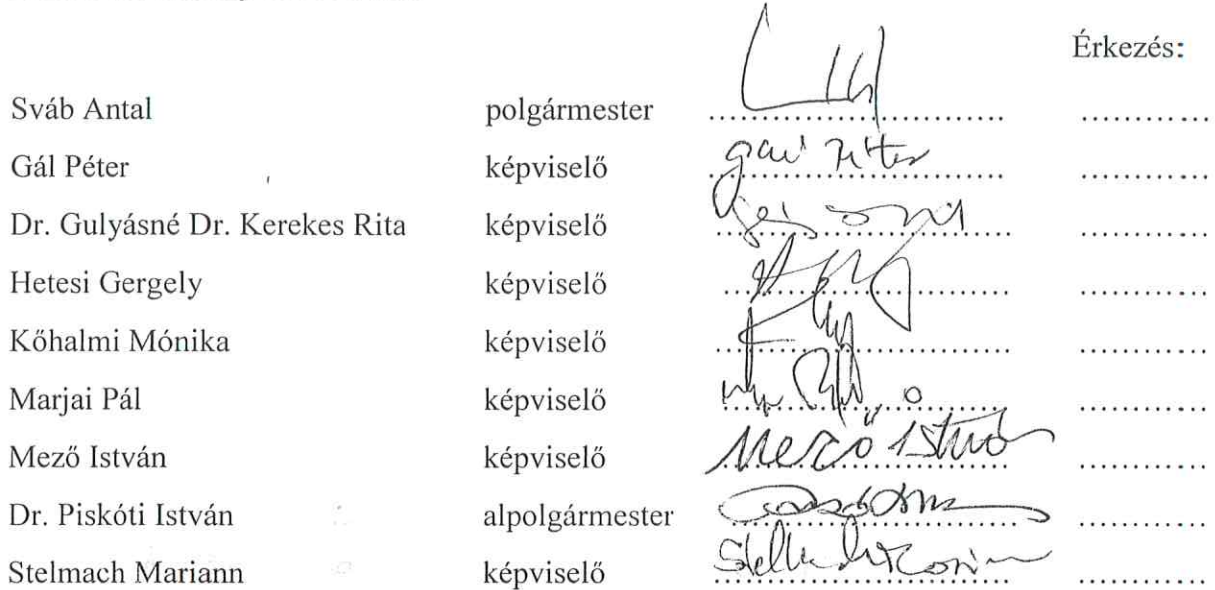 Érkezés:
Sváb Antal polgármester .............................. .............
Gál Péter képviselő Gál Péter .............................. .............
Dr. Gulyásné Dr. Kerekes Rita képviselő .............................. .............
Hetesi Gergely képviselő .............................. .............
Kőhalmi Mónika képviselő .............................. .............
Marjai Pál képviselő .............................. .............
Mező István képviselő Mező István .............................. .............
Dr. Piskóti István alpolgármester .............................. .............
Stelmach Mariann képviselő .............................. .............